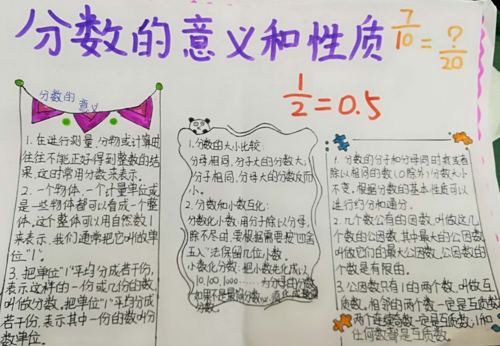 分数的意义和性质
7/10 = ?/20
1/2 = 0.5
分数的
意义
1.在进行测量、分物或计算时
往往不能正好得到整数的结
果,这时常用分数来表示。
2.一个物体、一个计量单位或
是一些物体都可以看成一个整
体。这个整体可以用自然数1
来表示,我们通常把它叫做单
位“1”。
3.把单位“1”平均分成若干份,
表示这样的一份或几份的数
叫做分数。把单位“1”平均分成
若干份,表示其中一份的数叫分
数单位。
1.分数的大小比较:
分母相同,分子大的分数大,
分子相同,分母大的分数反而
小。
2.分数和小数互化:
分数化小数:用分子除以分母,
除不尽时,要根据需要按“四舍
五入”法保留几位小数。
小数化分数:把小数先化成以
10,100,1000……为分母的分数
如果不是最简分数
分数。
1.分数的分子和分母同时乘或者
除以相同的数(0除外)分数大小
不变。根据分数的基本性质可以
进行约分和通分。
2.几个数公有的因数,叫做这几
个数的公因数,其中最大的公因数
叫做它们的最大公因数,公因数的个
数是有限的。
3.公因数只有1的两个数,叫做互
质数。相邻的两个数一定是互质数
两个连续奇数一定是互质数,1和
任何数都是互质数。